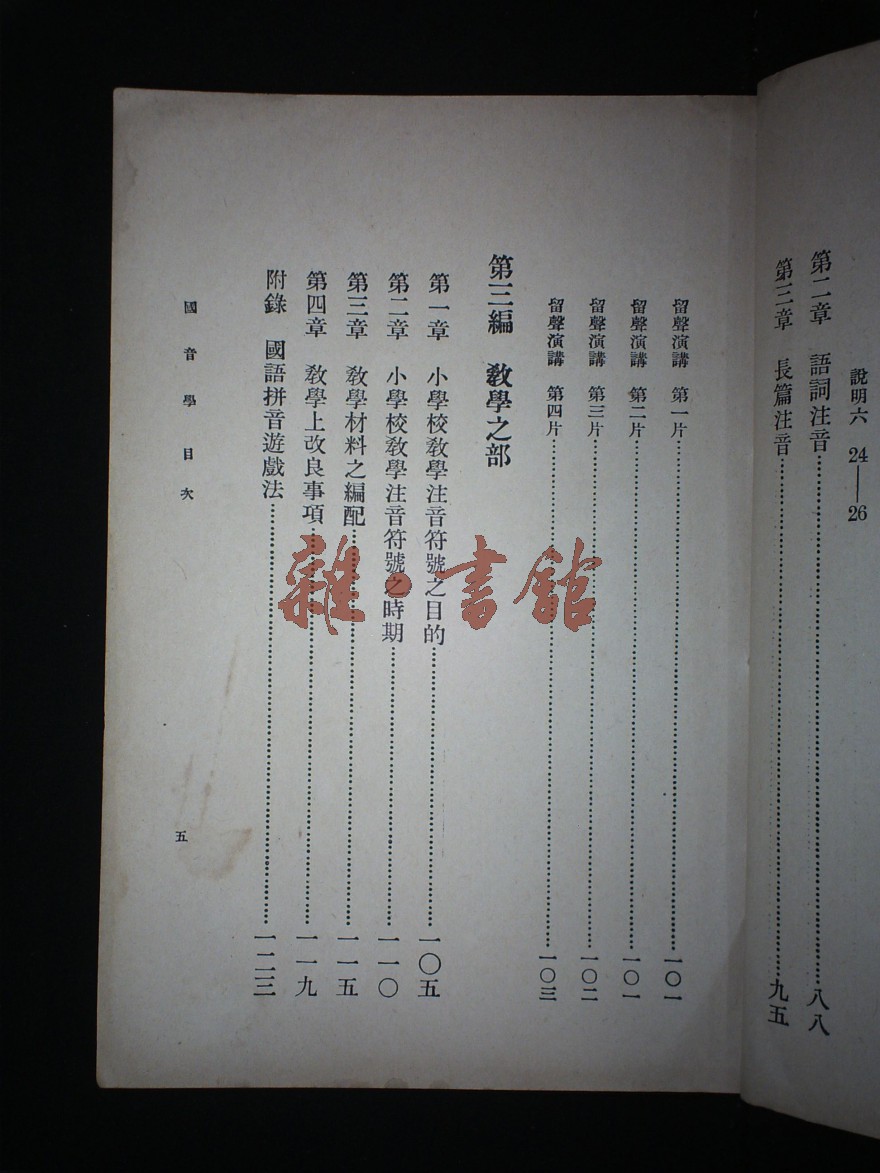 說明六 24——26
第二章 語詞注音……八八
第三章 長篇注音……九五
留聲演講 第一片……一〇一
留聲演講 第二片……一〇一
留聲演講 第三片……一〇二
留聲演講 第四片……一〇三
第三編 教學之部
第一章 小學校教學注音符號之目的……一〇五
第二章 小學校教學注音符號之時期……一一〇
第三章 教學材料之編配……一一五
第四章 教學上改良事項……一一九
附錄 國語拼音遊戲法……一二三
國音學 目次
五
雜·書館